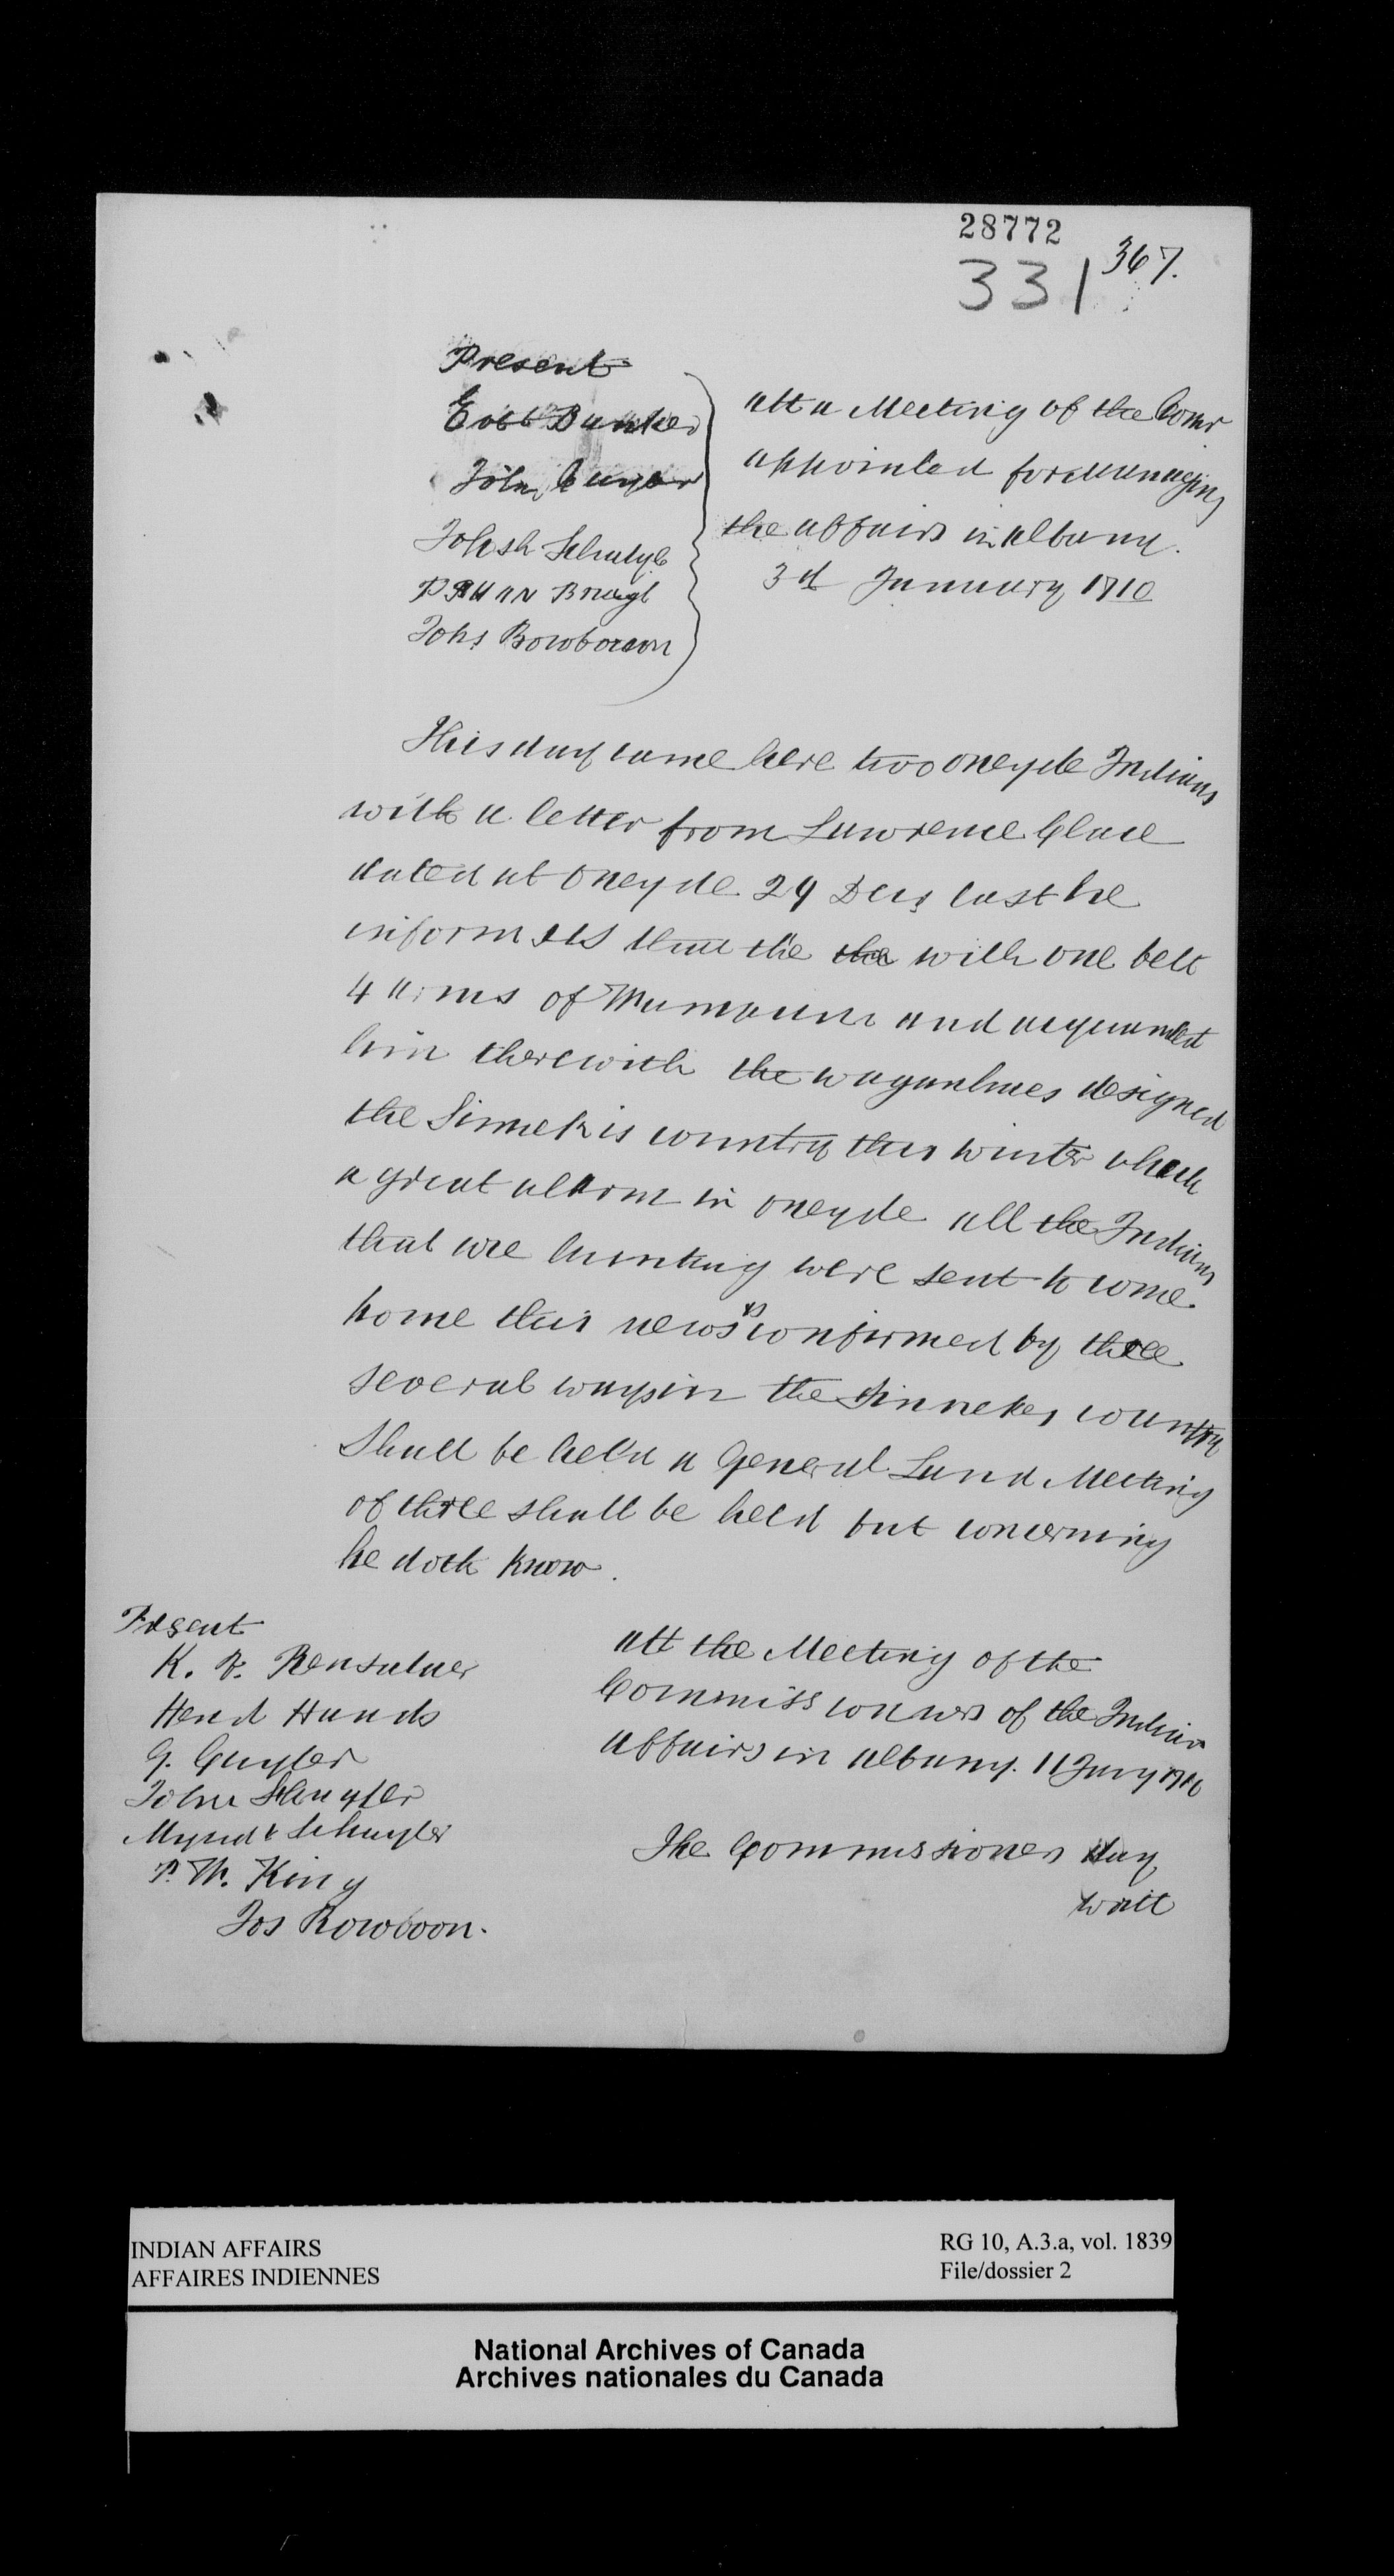 28772
331 367.
Present
Evert Banker
John Cuyler
Johsh Schuyle
P V an Brugh
Johs Rowboson
att a Meeting of the Comr
appointed for Managing
the affairs in albany.
3d January 1710
This day came here two oneyde Indians
with a letter from Lawrence Clace
dated at oneyde 29 Decr last he
informs us the the with one belt
4 arms of Wampum and acquainted
him therewith the waganhaes designed
the Sinnekis country this winter which
a great alarm in oneyde all the Indians
that are hunting were sent to come
home this news is confirmed by three
several ways in the Sinnekes country
Shall be held a General Land Meeting
of three shall be held but concerning
he doth know.
Present
K. V. Renselaer
Hend Hansds
J. Cuyler
John Schuyler
Mynd t Schuyler
P. W. King
Jos Rowboon.
att the Meeting of the
Commissioners of the Indian
affairs in albany. 11 Jary 1710
The Commissioners Day
wait
INDIAN AFFAIRS
AFFAIRES INDIENNES
RG 10, A.3.a, vol. 1839
File/dossier 2
National Archives of Canada
Archives nationales du Canada